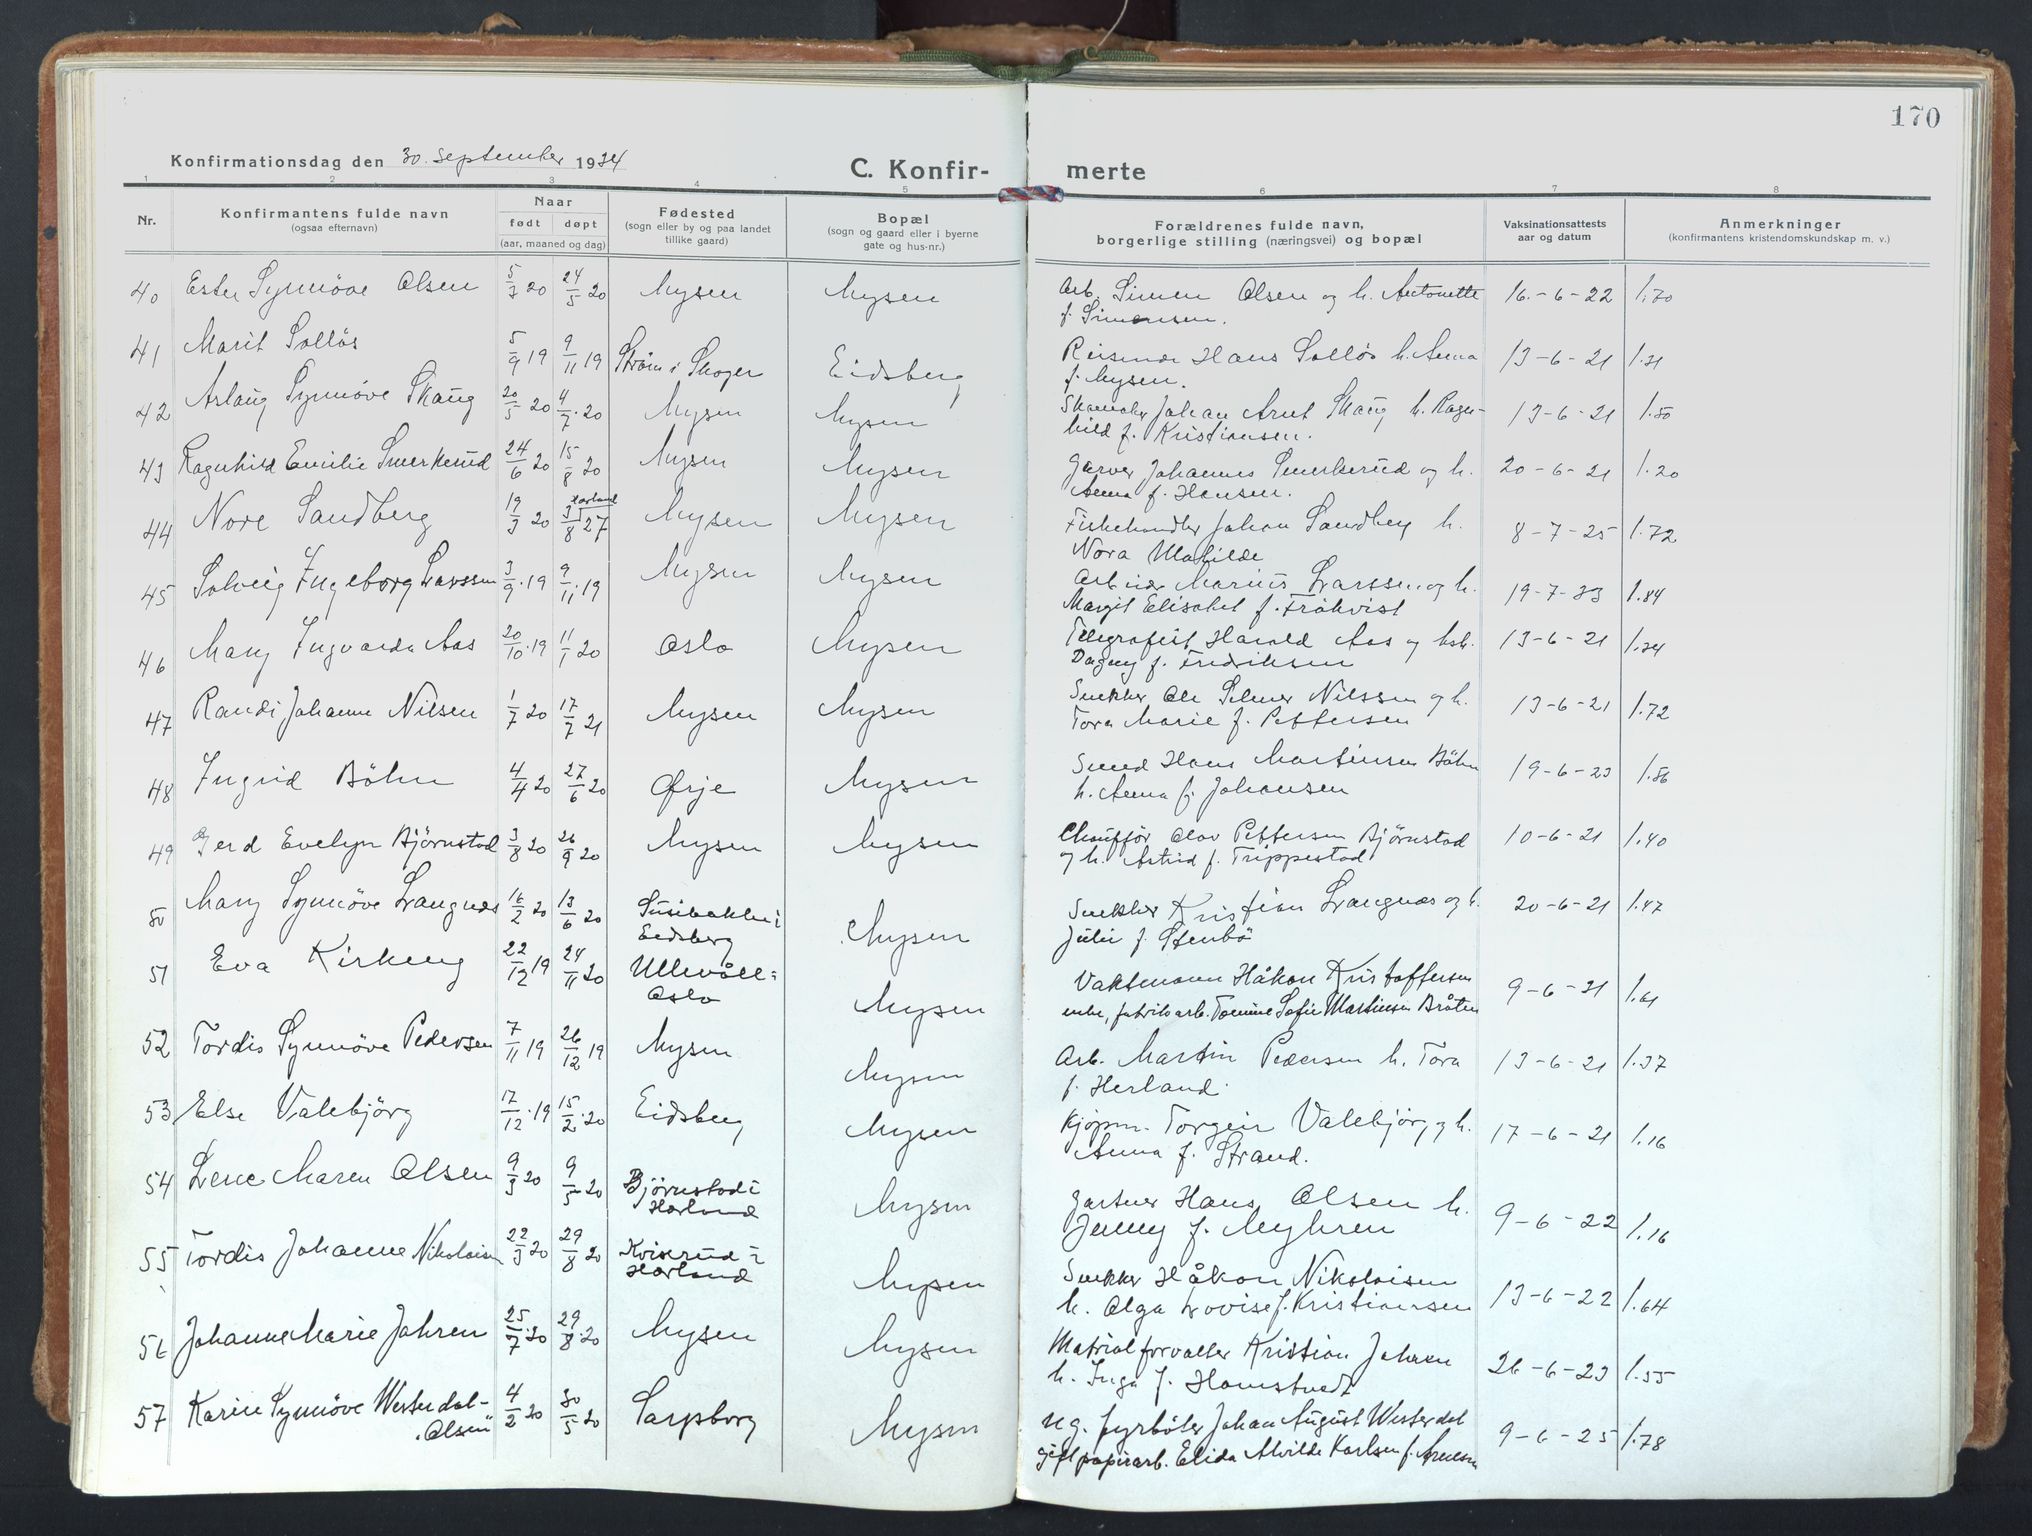 170
Konfirmationsdag den 30. september 1934
C. Konfir-merte
1 2 3 4 5 6 7 8
Nr.
Konfirmantens fulde navn
(ogsaa efternavn)
Naar
født døpt
(aar, maaned og dag)
Fødested
(sogn eller by og paa landet
tillike gaard)
Bopæl
(sogn og gaard eller i byerne
gate og hus-nr.)
Forældrenes fulde navn,
borgerlige stilling (næringsvei) og bopæl
Vaksinationsattests
aar og datum
Anmerkninger
(konfirmantens kristendomskundskap m. v.)
40 Ester Synnöve Olsen 5/3 20 24/5 20 Mysen Mysen Arb. Simen Olsen og h. Antonette 16-6-22 1.70
f. Simensen.
41 Marit Solløs 5/9 19 9/11 19 Strøm i Skoger Eidsberg Reisende Hans Solløs h. Anna 13-6-21 1.31
f. Mysen.
42 Aslaug Synnöve Skaug 20/5 20 4/7 20 Mysen Mysen Skomaker Johan Arnt Skaug h. Ragn- 13-6-21 1.50
hild f. Kristiansen.
43 Ragnhild Emilie Smerkerud 24/6 20 15/8 20 Mysen Mysen Garver Johannes Smerkerud og h. 20-6-21 1.20
Anna f. Hansen.
44 Nore Sandberg 19/3 20 Hærland 3/8 27 Mysen Mysen Fiskehandler Johan Sandberg h. 8-7-25 1.72
Nora Mathilde
45 Solveig Ingeborg Larssen 3/9 19 9/11 19 Mysen Mysen Arbeider Marius Larssen og h. 19-7-33 1.84
Margit Elisabet f. Fråkvist
46 Mary Ingvarda Aas 20/10 19 11/1 20 Oslo Mysen Telegrafist Harald Aas og h. 13-6-21 1.34
Dagny f. Fredriksen
47 Randi Johanne Nilsen 1/7 20 17/7 21 Mysen Mysen Snekker Ole Selmer Nilssen og h. 13-6-21 1.72
Tora Marie f. Pettersen
48 Ingrid Böhn 4/4 20 27/6 20 Ørje Mysen Smed Hans Martinsen Böhn 19-6-23 1.56
h. Anna f. Johansen
49 Gerd Evelyn Bjørnstad 3/8 20 26/9 20 Mysen Mysen Chauffør Olav Pettersen Bjørnstad 10-6-21 1.40
og h. Astrid f. Trippestad
50 Mary Synnöve Langnæs 16/2 20 13/6 20 Susebakke i Mysen Snekker Kristian Langnæs og h. 20-6-21 1.47
Eidsberg Julie f. Stenbö
51 Eva Kirkeng 22/12 19 24/11 20 Ullevåll- Mysen Vaktmann Håkon Kristoffersen 9-6-21 1.61
Oslo enke, fabrikarb. Tomine Sofie Martinsen Bråten
52 Tordis Synnöve Pedersen 7/11 19 26/12 19 Mysen Mysen Arb. Martin Pedersen h. Tora 13-6-21 1.37
f. Herland.
53 Else Valebjörg 17/12 19 15/2 20 Eidsberg Mysen Kjøpm. Torgeir Valebjörg og h. 17-6-21 1.16
Anna f. Strand.
54 Lene Maren Olsen 9/3 20 9/5 20 Bjørnstad i Mysen Gartner Hans Olsen h. 9-6-22 1.16
Hærland Jenny f. Myhren
55 Tordis Johanne Nikolaisen 22/3 20 29/8 20 Kviserud i Mysen Snekker Håkon Nikolaisen 13-6-22 1.64
Hærland h. Olga Lovise f. Kristiansen
56 Johanne Marie Jahren 25/7 20 29/8 20 Mysen Mysen Matrialforvalter Kristian Jahren 26-6-23 1.55
h. Inga f. Homstvedt
57 Karin Synnöve Westerdal- 4/2 20 30/5 20 Sarpsborg Mysen Ug. fyrböter Johan August Westerdal 9-6-25 1.78
Olsen gift papirarb. Elida Alvilde Karlsen f.